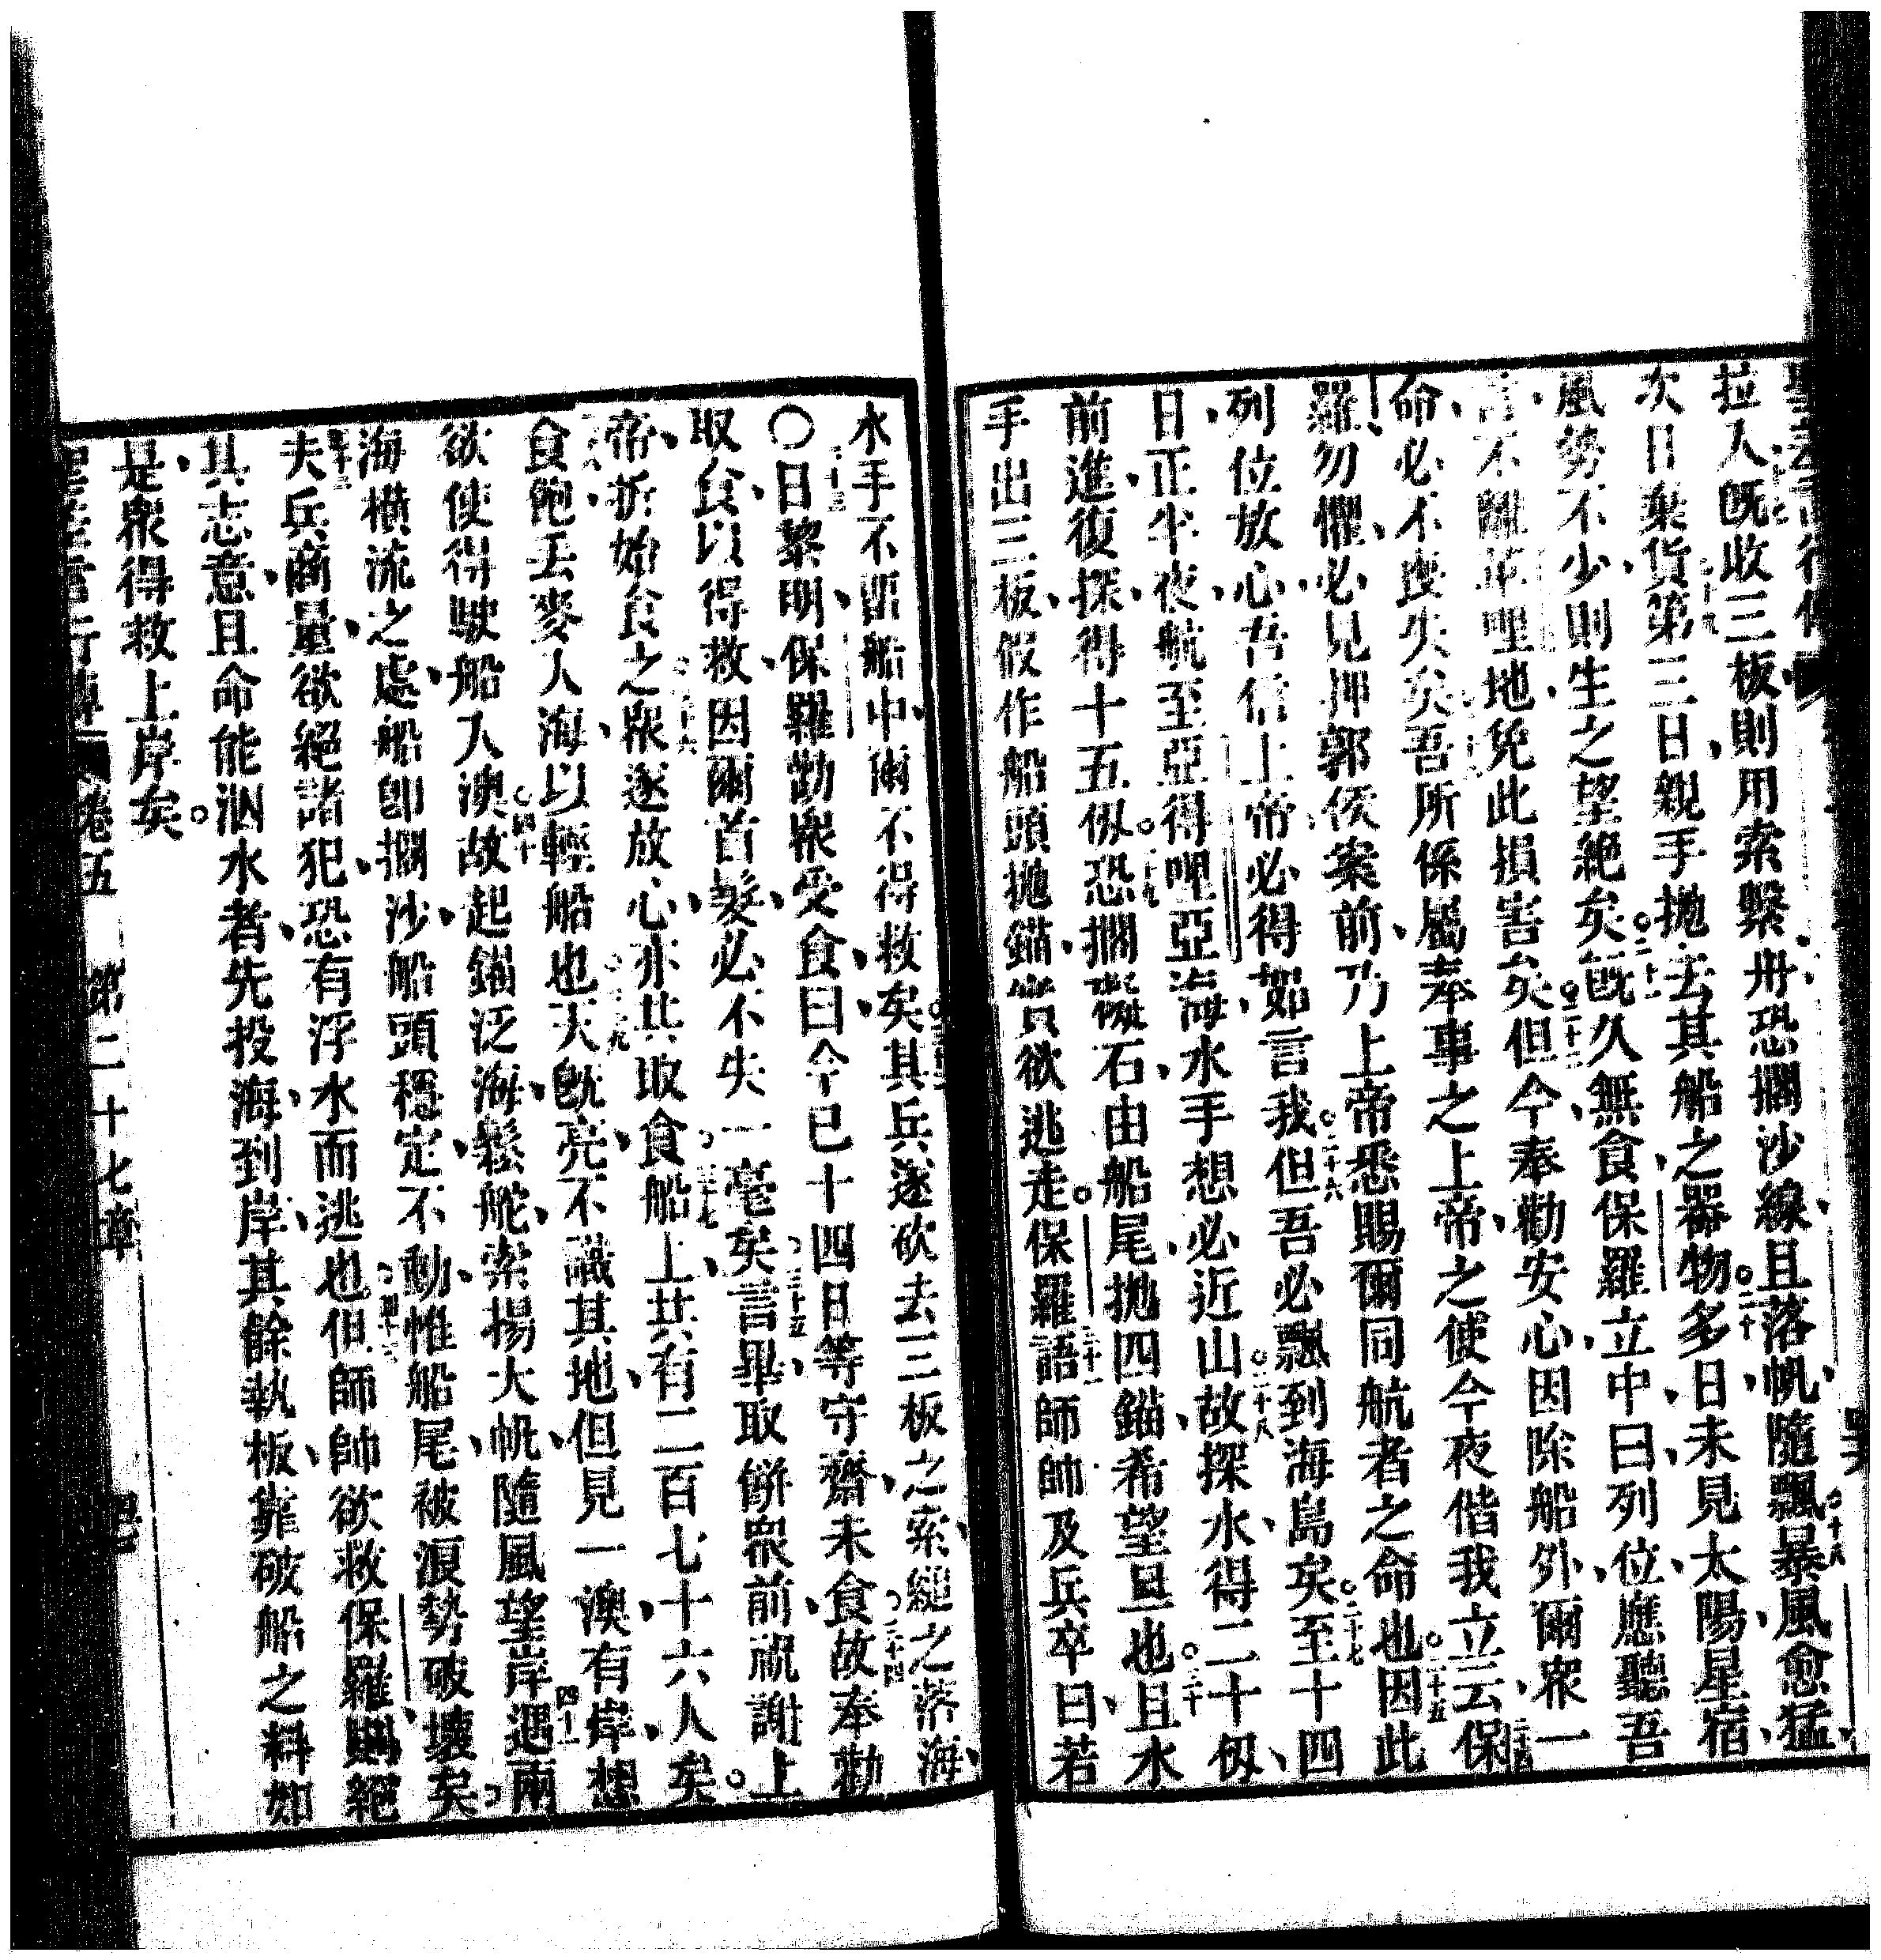 拉入旣收三板則用索繫舟恐擱沙線且落帆隨飄十八暴風愈猛
次日棄貨第三日親手拋去其船之器物二十多日未見太陽星宿
風勢不少則生之望絕矣二十一旣久無食保羅立中曰列位應聽吾
言不離革哩地免此損害矣二十二但今奉勸安心因除船外爾衆一
命必不喪失矣吾所係屬奉事之上帝之使今夜偕我立云二十四保
羅勿懼必見押郭侯案前乃上帝悉賜爾同航者之命也二十五因此
列位放心吾信上帝必得如言我二十六但吾必飄到海島矣二十七至十四
日正半夜航至亞得哩亞海水手想必近山二十八故探水得二十㑔
前進復探得十五㑔二十九恐擱礙石由船尾拋四錨希望旦也三十且水
手出三板假作船頭拋錨實欲逃走三十一保羅語師帥及兵卒曰若
水手不留船中爾不得救矣三十二其兵遂砍去三板之索縋之落海
〇三十三日黎明保羅勸衆受食曰今已十四日等守齋未食三十四故奉勸
取食以得救因爾首髮必不失一毫矣三十五言畢取餅衆前祝謝上
帝折始食之三十六衆遂放心亦共取食三十七船上共有二百七十六人矣
食飽丟麥入海以輕船也三十九天旣亮不識其地但見一澳有岸想
欲使得駛船入澳四十故起錨泛海鬆舵索揚大帆隨風望岸四十一遇兩
海橫流之處船卽擱沙船頭穩定不動惟船尾被浪勢破壞矣
四十二夫兵商量欲絕諸犯恐有浮水而逃也四十三但師帥欲救保羅則絕
其志意且命能泅水者先投海到岸其餘執板靠破船之料如
是衆得救上岸矣
聖差言行傳 卷五 第二十七章